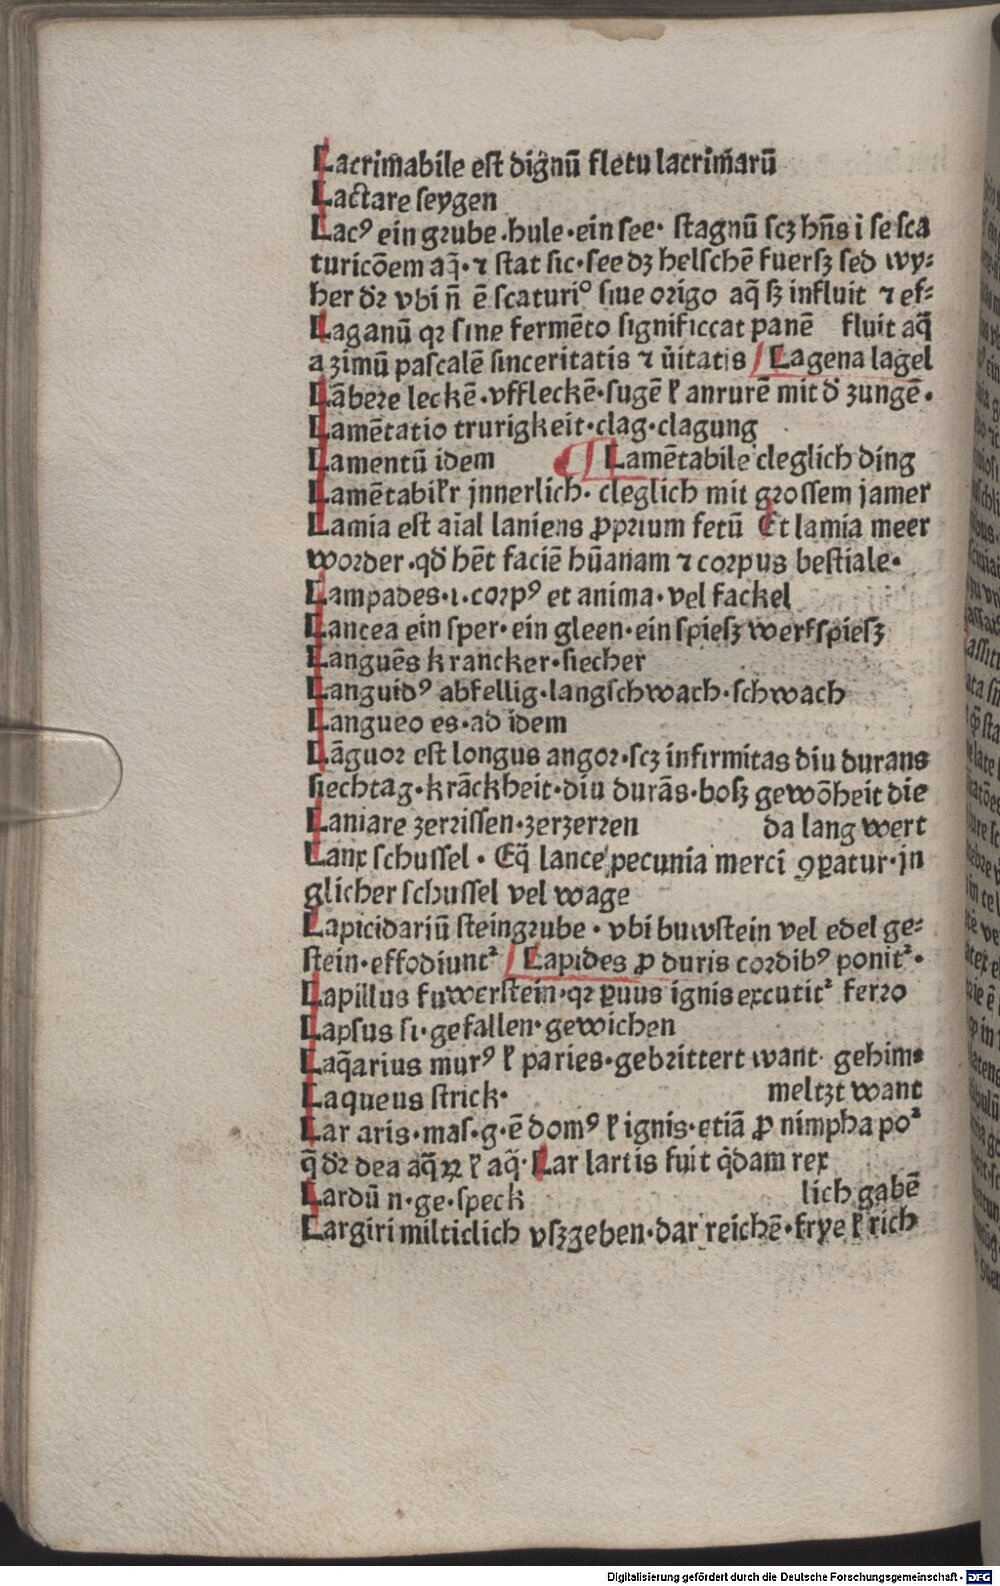 Lacrim̄abile eſt dign̄ū fletu lacrim̄arū
Lactare ſeygen
Lacꝰ ein gꝛube .hule·ein ſee· ſtagnū ſcꝫ hn̄s i ſe ſca
turicōem aq̄·⁊ ſtat ſic·ſee dꝫ helſchē fuerſꝫ ſed wy⸗
her dꝛ̄ vbi n̄ ē ſcaturi° ſiue oꝛigo aq̄ ſꝫ influit ⁊ ef⸗
Laganū qꝛ ſine fermēto ſignificcat panē fluit aq̄
a zimū paſcalē ſinceritatis ⁊ v̄itatis Lagena lagel
Lābeꝛe leckē·vffleckē·ſugē ł anrurē mit d̄ zungē·
Lamētatio trurigkeit·clag·clagung
Lamentū idem Lamētabile cleglich ding
Lamētabilꝛ jnnerlich· cleglich mit gꝛoſſem jamer
Lamia eſt aīal laniens ꝓpꝛium fetū Et lamia meer
woꝛder·qd̄ hēt faciē hūanam ⁊ coꝛpus beſtiale·
Lampades·ı·coꝛpꝰ et anima·vel fackel
Lancea ein ſper·ein gleen·ein ſpieſꝫ werfſpieſꝫ
Languēs krancker·ſiecher
Languidꝰ abfellig·langſchwach·ſchwach
Langueo es·ad idem
Lāguoꝛ eſt longus angoꝛ·ſcꝫ infirmitas diu durans
ſiechtag·krāckheit·diu durās·boſꝫ gewōheit die
Laniare zerꝛiſſen·zerzerꝛen da lang wert
Lanx ſchuſſel· Eq̄ lance pecunia merci ꝯꝑatur·jn
glicher ſchuſſel vel wage
Lapicidariū ſteingꝛube·vbi buwſtein vel edel ge⸗
ſtein·effodiuntᷣ Lapides ꝓ duris coꝛdibꝰ ponitᷣ·
Lapillus fuwerſtein·qꝛ ꝑuus ignis excutitᷣ ferꝛo
Lapſus ſi·gefallen·gewichen
Laq̄arius murꝰ ł paries·gebꝛittert want· gehim⸗
Laqueus ſtrick· meltzt want
Lar aris·maſ·g·ē domꝰ ł ignis·etiā ꝓ nimpha poᷣ
q̄ dꝛ̄ dea aq̄ꝝ ł aq̄·Lar lartis fuit q̇dam rex
Lardū n·ge·ſpeck lich gabē
Largiri milticlich vſꝫgeben·dar reichē·frye ł rich
Digitalisierung gefördert durch die Deutsche Forschungsgemeinschaft - DFG